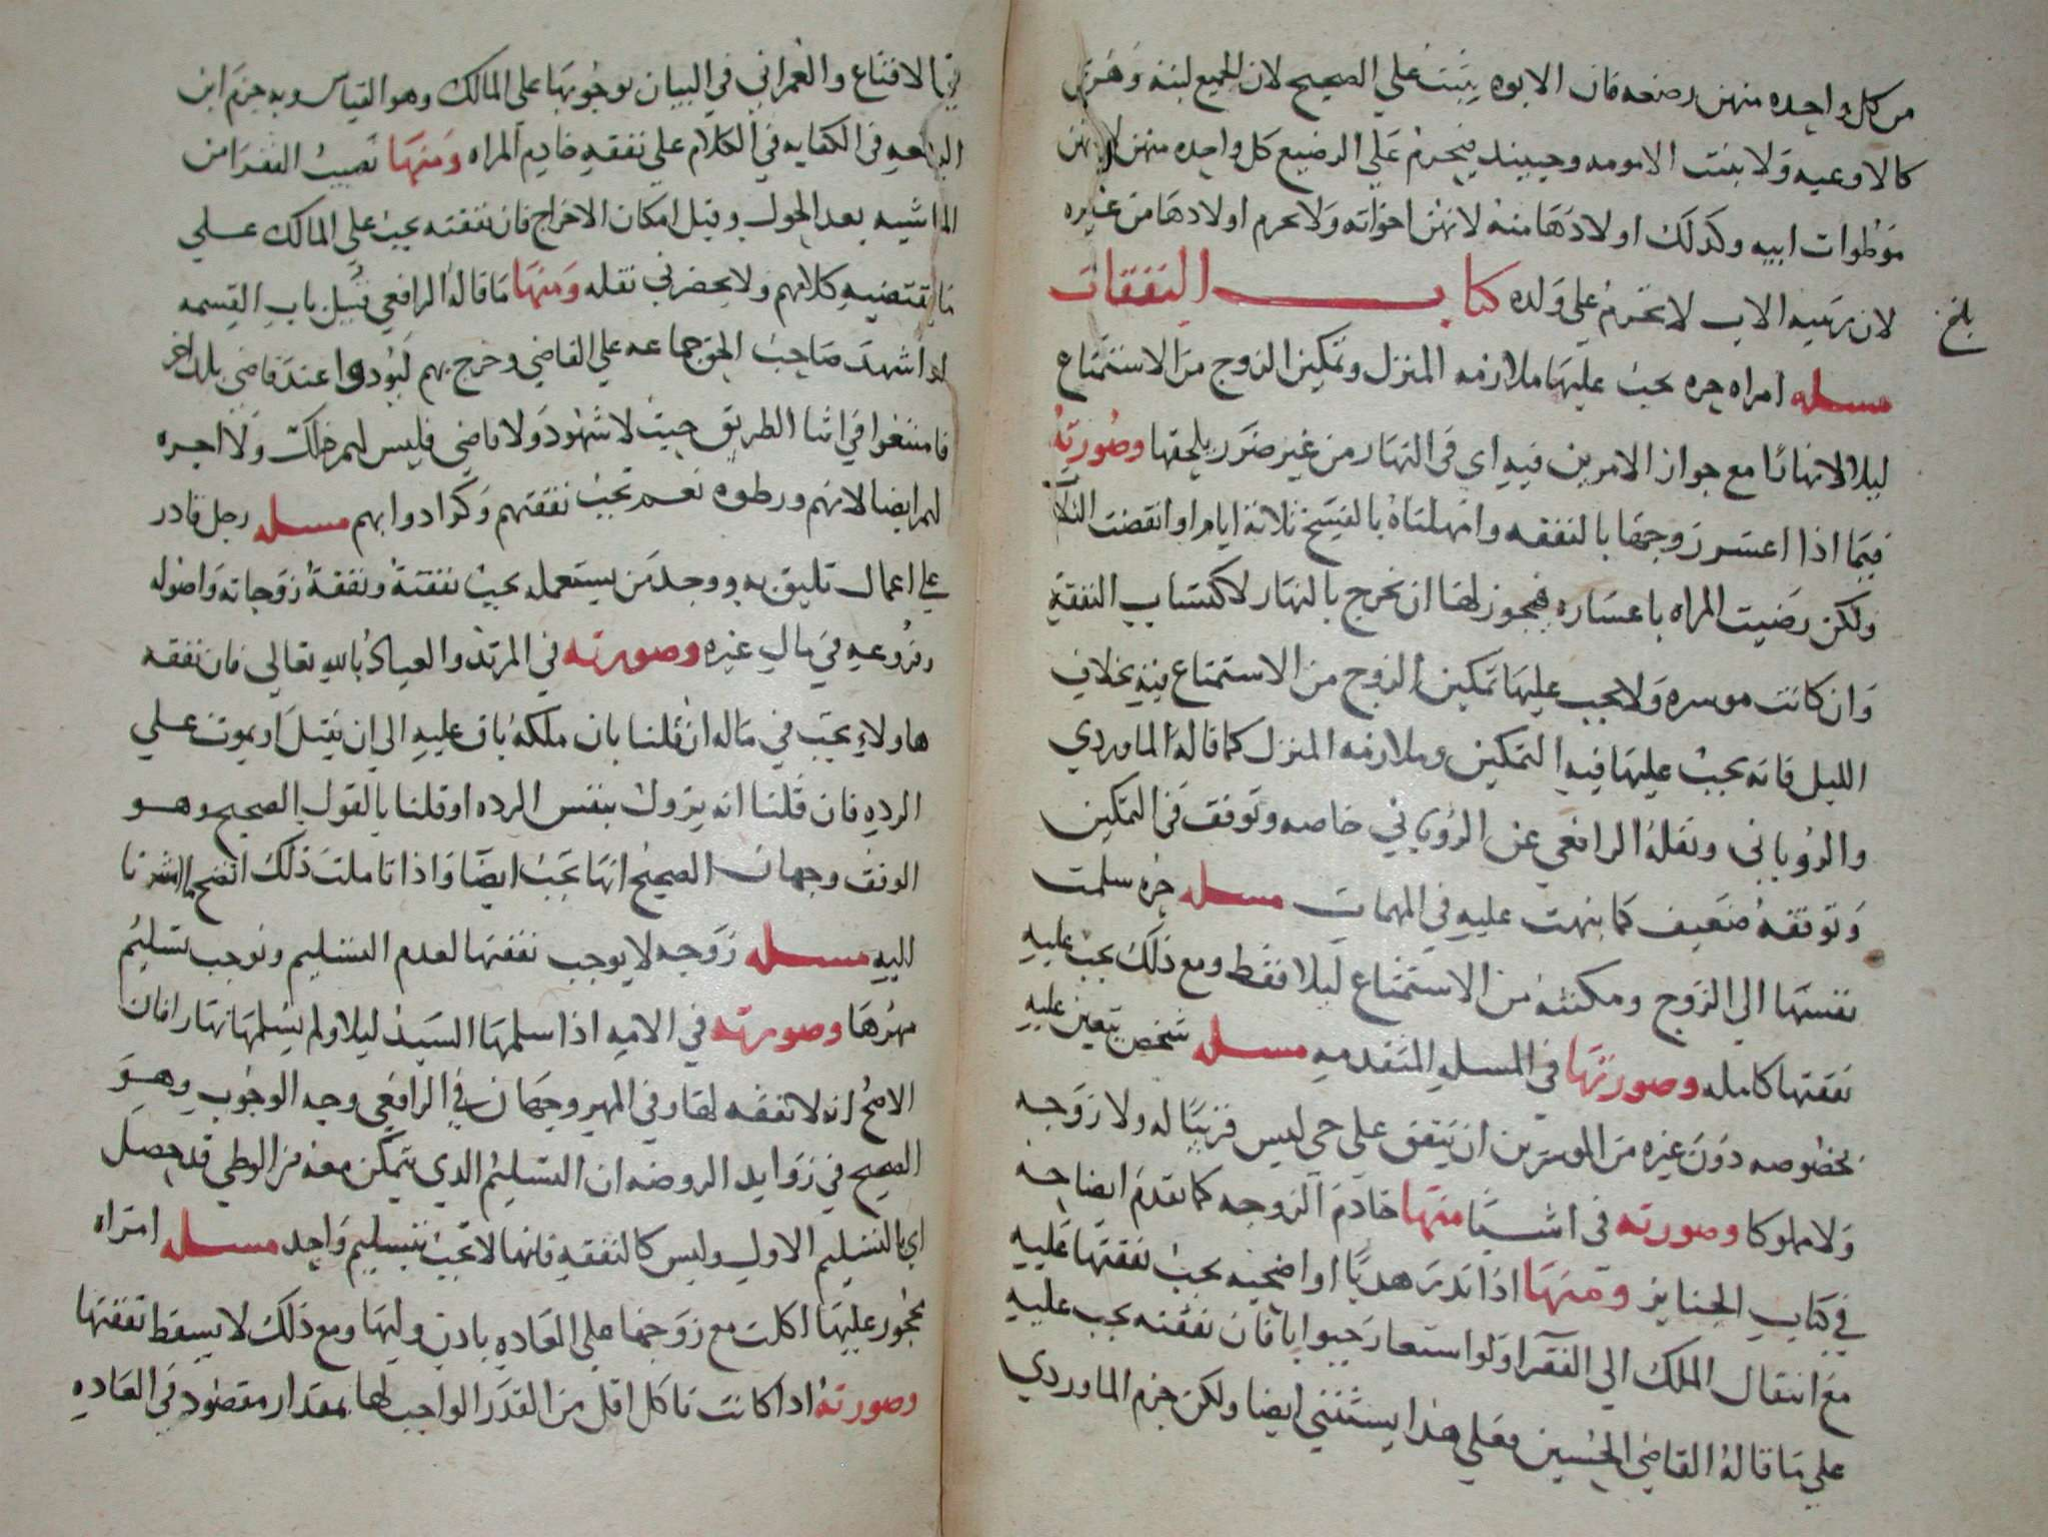 من كل واحده منهن رضعه فان الابوه يثبت علي الصحيح لان الجميع لبنه وهن
كالاوعيه ولا يثبت الامومه وحينيد فيحرم علي الرضيع كل واحده منهن لانهن
موطوات ابيه وكذلك اولادها منه لانهن اخواته ولا يحرم اولادها من غيره
لان ربيبه الاب لا تحرم علي ولده كتاب النفقات
بلغ
مسله امراه حره يجب عليها ملازمه المنزل وتمكين الزوج من الاستمتاع
ليلا لا نهارا مع جواز الامرين فيه اي في النهار من غير ضرر يلحقها وصورته
فيما اذا اعسر زوجها بالنفقه وامهلناه بالفسخ ثلاثة ايام او انقضت الثلاثة
ولكن رضيت المراه باعساره فيجوز لها ان تخرج بالنهار لاكتساب النفقة
وان كانت موسره ولا يجب عليها تمكين الزوج من الاستمتاع فيه بخلاف
الليل فانه يجب عليها فيه التمكين وملازمه المنزل كما قاله الماوردي
والروياني ونقله الرافعي عن الروياني خاصه وتوقف في التمكين
وتوقفه ضعيف كما نبهت عليه في المهمات مسله حره سلمت
نفسها الي الزوج ومكنته من الاستمتاع ليلا فقط ومع ذلك يجب عليه
نفقتها كامله وصورتها في المسله المتقدمه مسله شخص يتعين عليه
بخصوصه دون غيره من الموسرين ان ينفق علي حي ليس قريبا له ولا زوجه
ولا مملوكا وصورته في اشيا منها خادم الزوجه كما تقدم ايضاحه
في كتاب الجنايز ومنها اذا نذر هديا او اضحيه يجب نفقتها عليه
مع انتقال الملك الي الفقرا ولو استعار حيوانا فان نفقته يجب عليه
علي ما قاله القاضي الحسين فعلي هذا يستثني ايضا ولكن جزم الماوردي
في الاقناع والعمراني في البيان بوجوبها علي المالك وهو القياس وبه جزم ابن
الرفعه في الكفايه في الكلام علي نفقه خادم المراه ومنها نصيب الفقرا من
الماشيه بعد الحول وقبل امكان الاخراج فان نفقته يجب علي المالك علي
ما يقتضيه كلامهم ولا يحضرني نقله ومنها ما قاله الرافعي قبيل باب القسمه
اذا اشهد صاحب الحق جماعه علي القاضي وخرج بهم ليودوا عند قاضي بلد اخر
فامتنعوا في اثنا الطريق حيث لا شهود ولا قاضي فليس لهم ذلك ولا اجره
لهم ايضا لانهم ورطوه نعم تجب نفقتهم وكرا دوابهم مسله رجل قادر
علي اعمال تليق به ووجد من يستعمله يجب نفقته ونفقة زوجاته واصوله
وفروعه في مال غيره وصورته في المرتد والعياذ بالله تعالي فان نفقه
هاولاء يجب في ماله ان قلنا بان ملكه باق عليه الي ان يقتل او يموت علي
الرده فان قلنا انه يزول بنفس الرده او قلنا بالقول الصحيح وهو
الوقف وجهان الصحيح انها تجب ايضا واذا تاملت ذلك اتضح ما اشرنا
اليه مسله زوجه لا يوجب نفقتها لعدم التسليم ونوجب تسليم
مهرها وصورته في الامه اذا سلمها السيد ليلا ولم يسلمها نهارا فان
الاصح انه لا نفقه لها وفي المهر وجهان في الرافعي وجه الوجوب وهو
الصحيح في زوايد الروضه ان التسليم الدي يتمكن معه من الوطي قد حصل
اي بالتسليم الاول وليس كالنفقه فانها لا تجب بتسليم واحد مسله امراه
محجور عليها اكلت مع زوجها علي العاده بادن وليها ومع ذلك لا يسقط نفقتها
وصورته ادا كانت تاكل اقل من القدر الواجب لها بمقدار مقصود في العاده